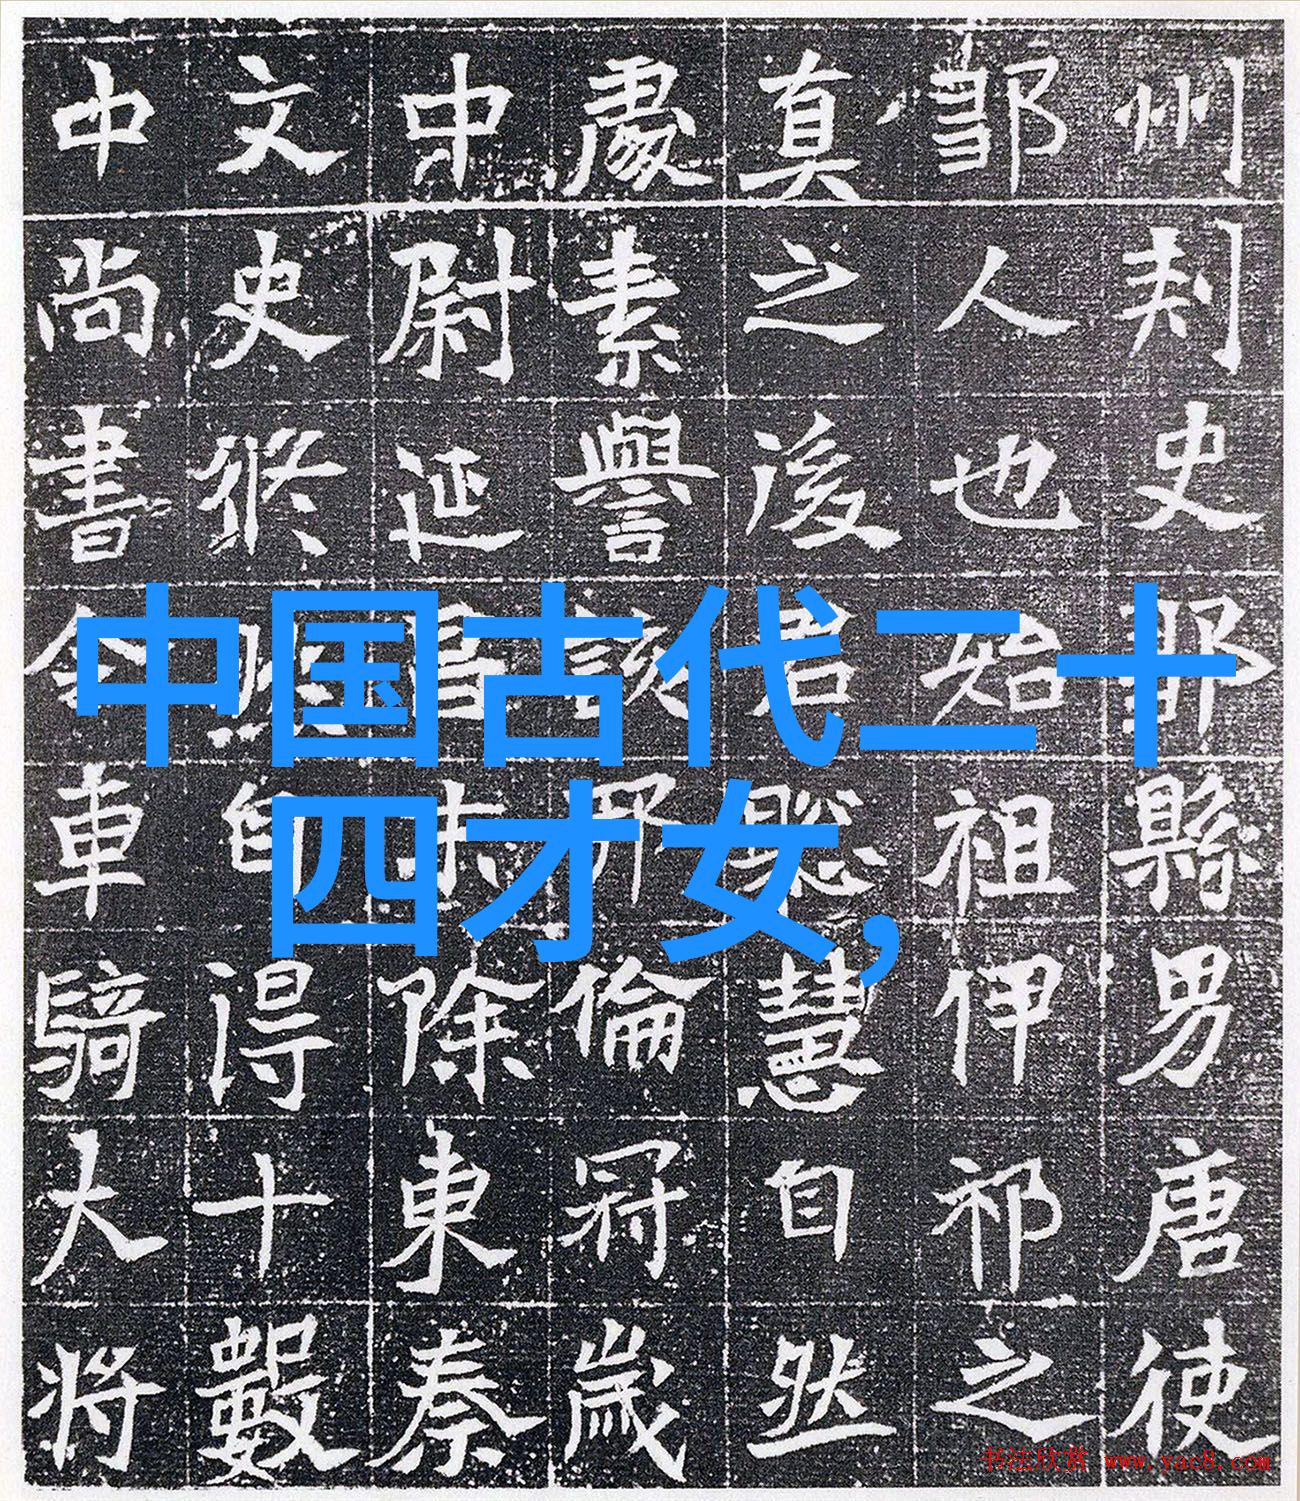 中国古代二十
四才女,
州刾史縣男唐使
人也始祖伊祁之
真之後君聰慧自然
處素譽該邦倫冠歲
中尉延昌末除東秦
文史自得十數
中尚書令車騎大將
书法欣赏 www.yac8.com